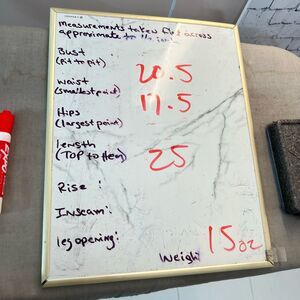 Measurements taken flat across
approximate to 1/2 inch
Bust :
(Pit to pit) 20.5
waist
(smallest point) 17.5
Hips
(largest point)
length
(TOP to Hem) 25
Rise :
Inseam :
leg opening :
Weigh 15 oz
EXPO